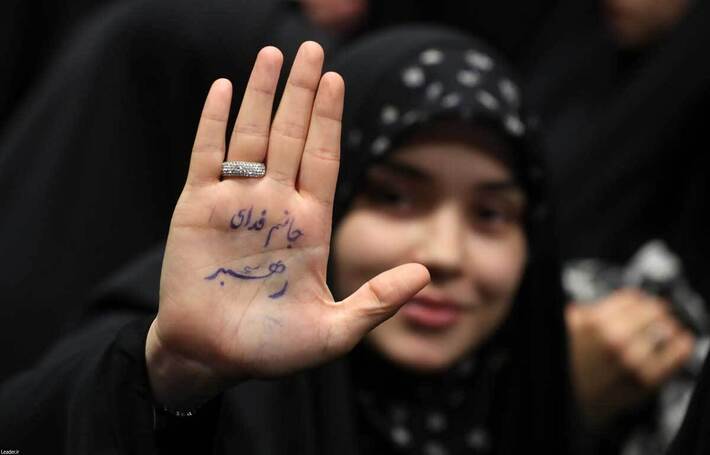 جانم فدای
رهبر
Leader.ir